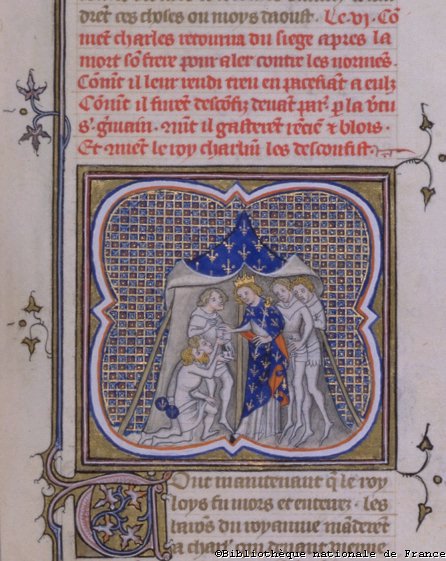 drent ces choses ou moys daoust. Le vi. Co
ment charles retourna du siege apres la
mort so frere pour aler contre les normes.
Coment il leur rendi treu en pacefiant a eulz
Coment il furent descofiz devant par. p la vtu
s. gmain. 
Et ment le roy charlun les desconfist.
Out maintenant q le roy
loys fu mors et enterez. les
baros du royaume manderet
a charl. qui devant vienne
©Bibliothèque nationale de France